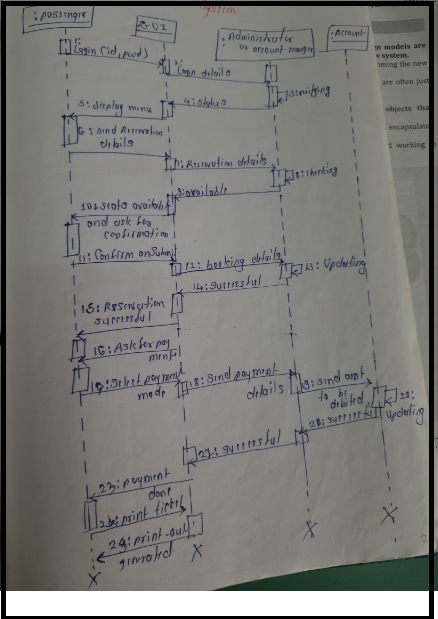 System
: passenger
: GUI
: Administrator
or account manager
: Account
1:
Login (id, pwd)
2:
Login details
3: verifying
4: status
5: display menu
6: send Reservation
details
7: Reservation details
8: checking
9: available
10: seats available
and ask for
confirmation
11: Confirm on submit
12: booking details
13: Updating
14: successful
15: Reservation
successful
16: Ask for pay
ment
17: Select payment
mode
18: send payment
details
19: send amt
to be
debited
20:
updating
20: successful
22: successful
23: payment
done
print ticket
24: print-out
generated
gn models are
w system.
ming the new
are often just
objects tha
encapsulate
d working